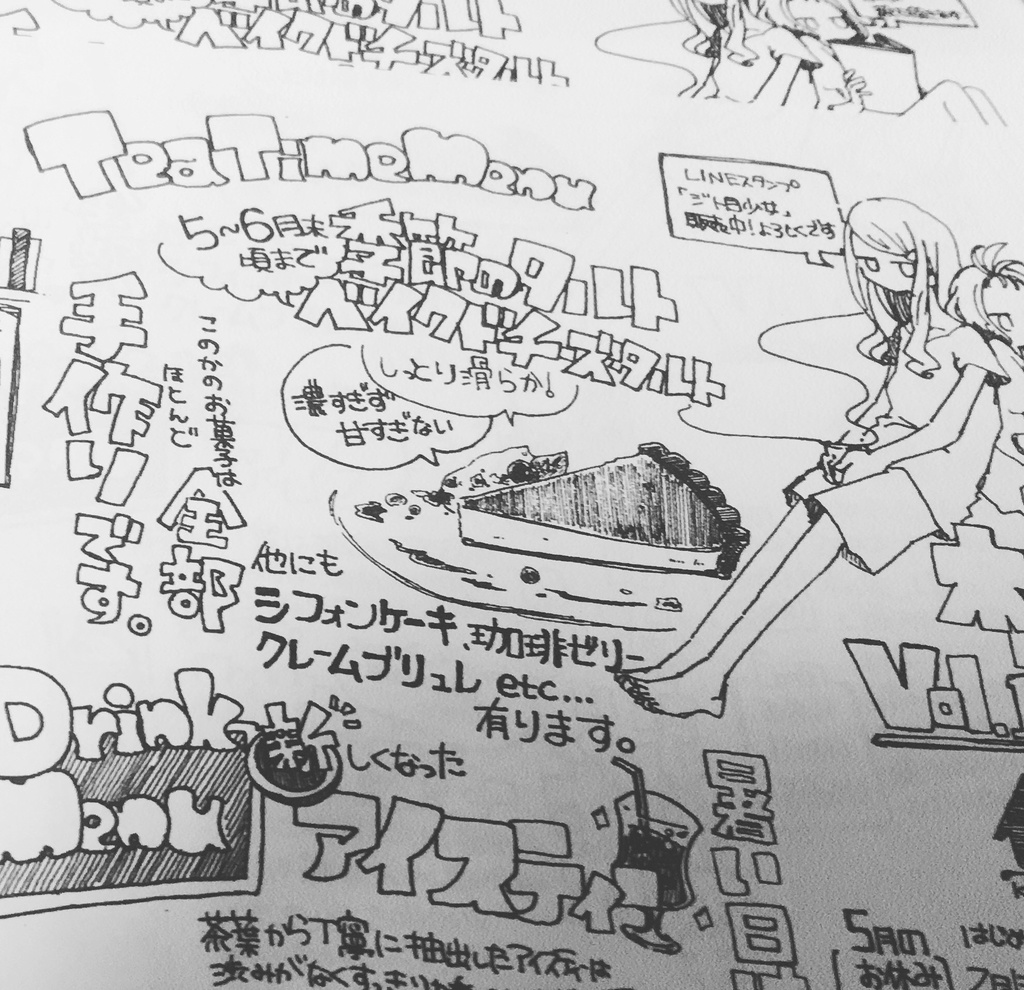 ベイクドチーズタルト
Tea Time Menu
5〜6月末
頃まで
季節のタルト
ベイクドチーズタルト
LINEスタンプ
「ジト目少女」
販売中!よろしくです
しっとり滑らか!
濃すぎず
甘すぎない
このかのお菓子は
ほとんど
全部
手作りです。
他にも
シフォンケーキ、珈琲ゼリー
クレームブリュレ etc...
有ります。
Vol.1
Drink
Menu
新しくなった
アイスティー
茶葉から丁寧に抽出したアイスティは
渋みがなくすっきり
暑い日
5月の
お休み
はじめ